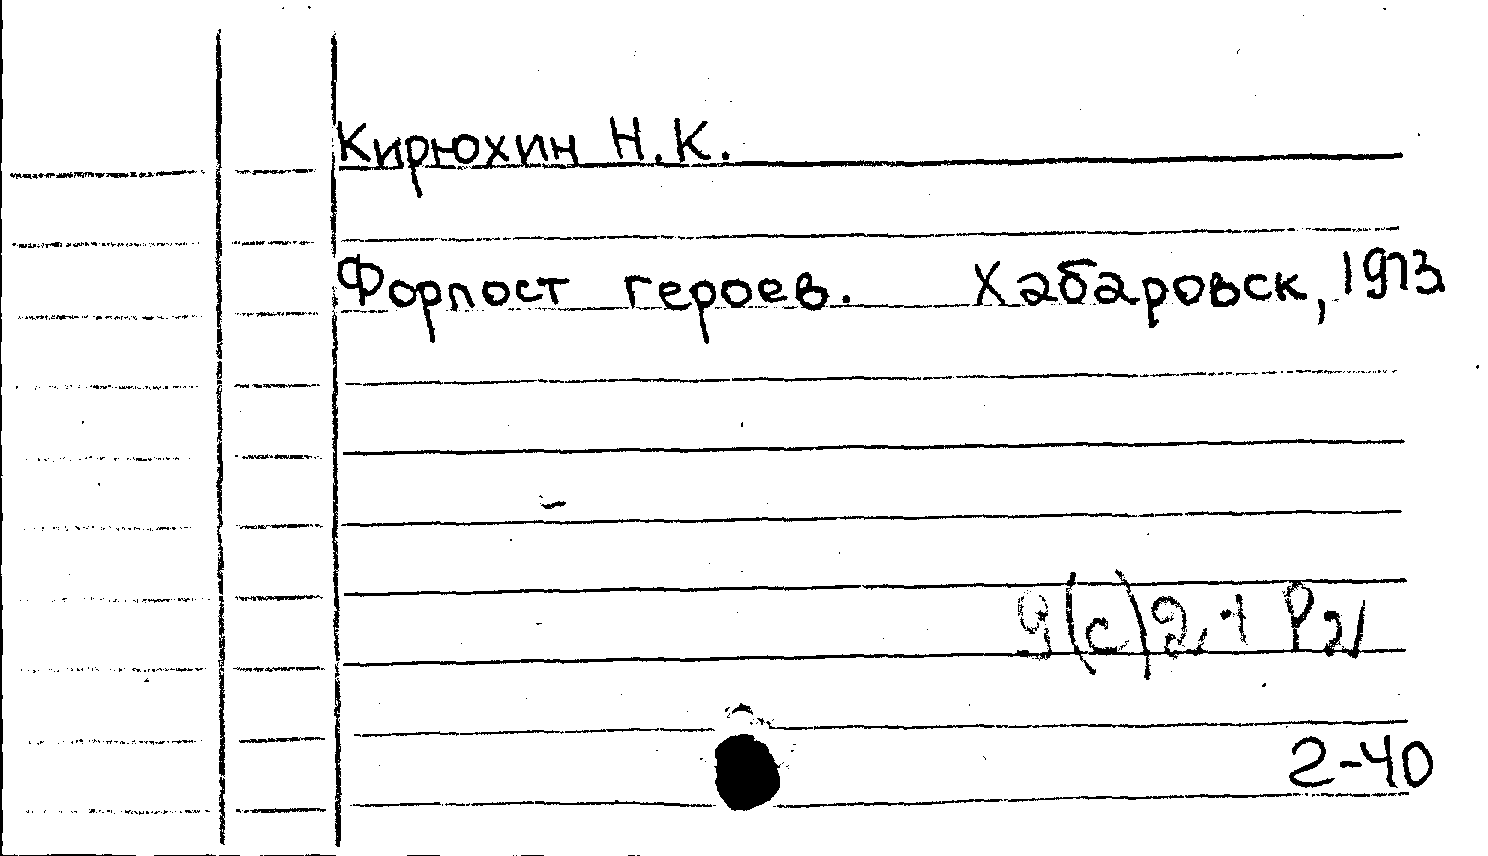 Кирюхин Н.К.
Форпост героев. Хабаровск, 1973
9(с)2,+ Р21
2-40